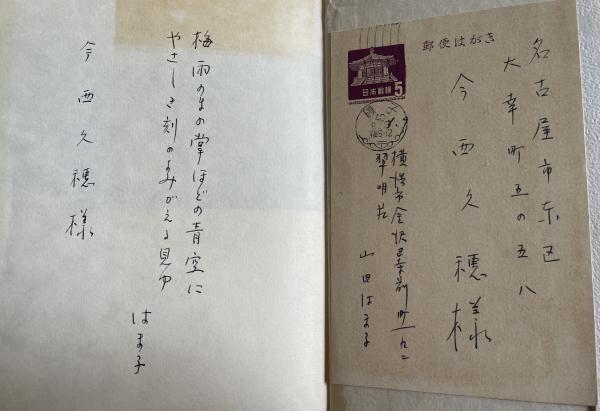 郵便はがき
日本郵便
5
名古屋市东区
大幸町五の五八
今西久穂様
横浜市金沢区
翠明荘
山田はま子
梅雨のまの掌ほどの青空に
やさしき刻のよみがえる見ゆ
はま子
今西久穂様